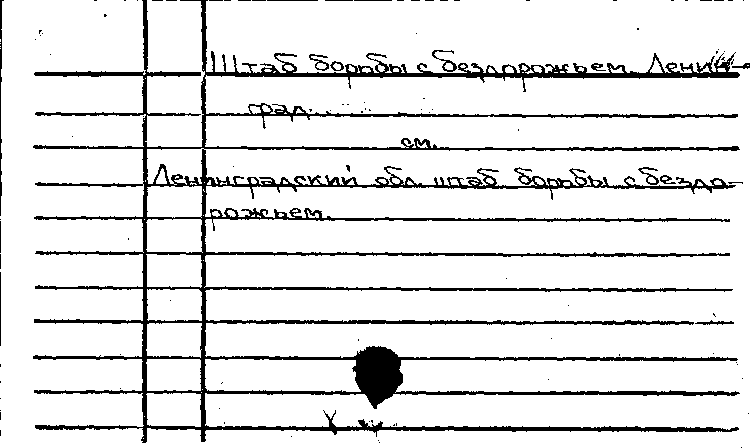 Штаб борьбы с бездорожьем. Ленин-
град.
см.
Ленинградский обл. штаб борьбы с бездо-
рожьем.